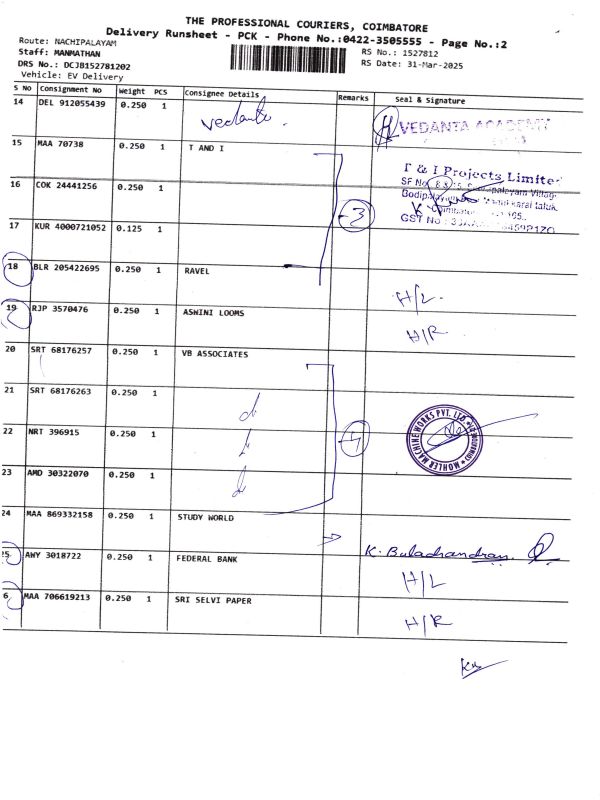 THE PROFESSIONAL COURIERS, COIMBATORE
Delivery Runsheet - PCK - Phone No.:0422-3505555 - Page No.:2
Route: NACHIPALAYAM
RS No.: 1527812
Staff: MANMATHAN
RS Date: 31-Mar-2025
DRS No.: DCJB152781202
Vehicle: EV Delivery
S No Consignment No Weight PCS Consignee Details Remarks Seal & Signature
14 DEL 912055439 0.250 1 Vedanta. VEDANTA ACADEMY
15 MAA 70738 0.250 1 T AND I
T & I Projects Limited
SF No
16 COK 24441256 0.250 1
Coimbatore
GST No
3
17 KUR 4000721052 0.125 1
18 BLR 205422695 0.250 1 RAVEL H/L
19 RJP 3570476 0.250 1 ASWINI LOOMS H/R
20 SRT 68176257 0.250 1 VB ASSOCIATES
21 SRT 68176263 0.250 1
22 NRT 396915 0.250 1 4 MOHLER MACHINE WORKS PVT. LTD.
23 AMD 30322070 0.250 1
24 MAA 869332158 0.250 1 STUDY WORLD K. Baladhandran.
25 AWY 3018722 0.250 1 FEDERAL BANK H/L
6 MAA 706619213 0.250 1 SRI SELVI PAPER H/R